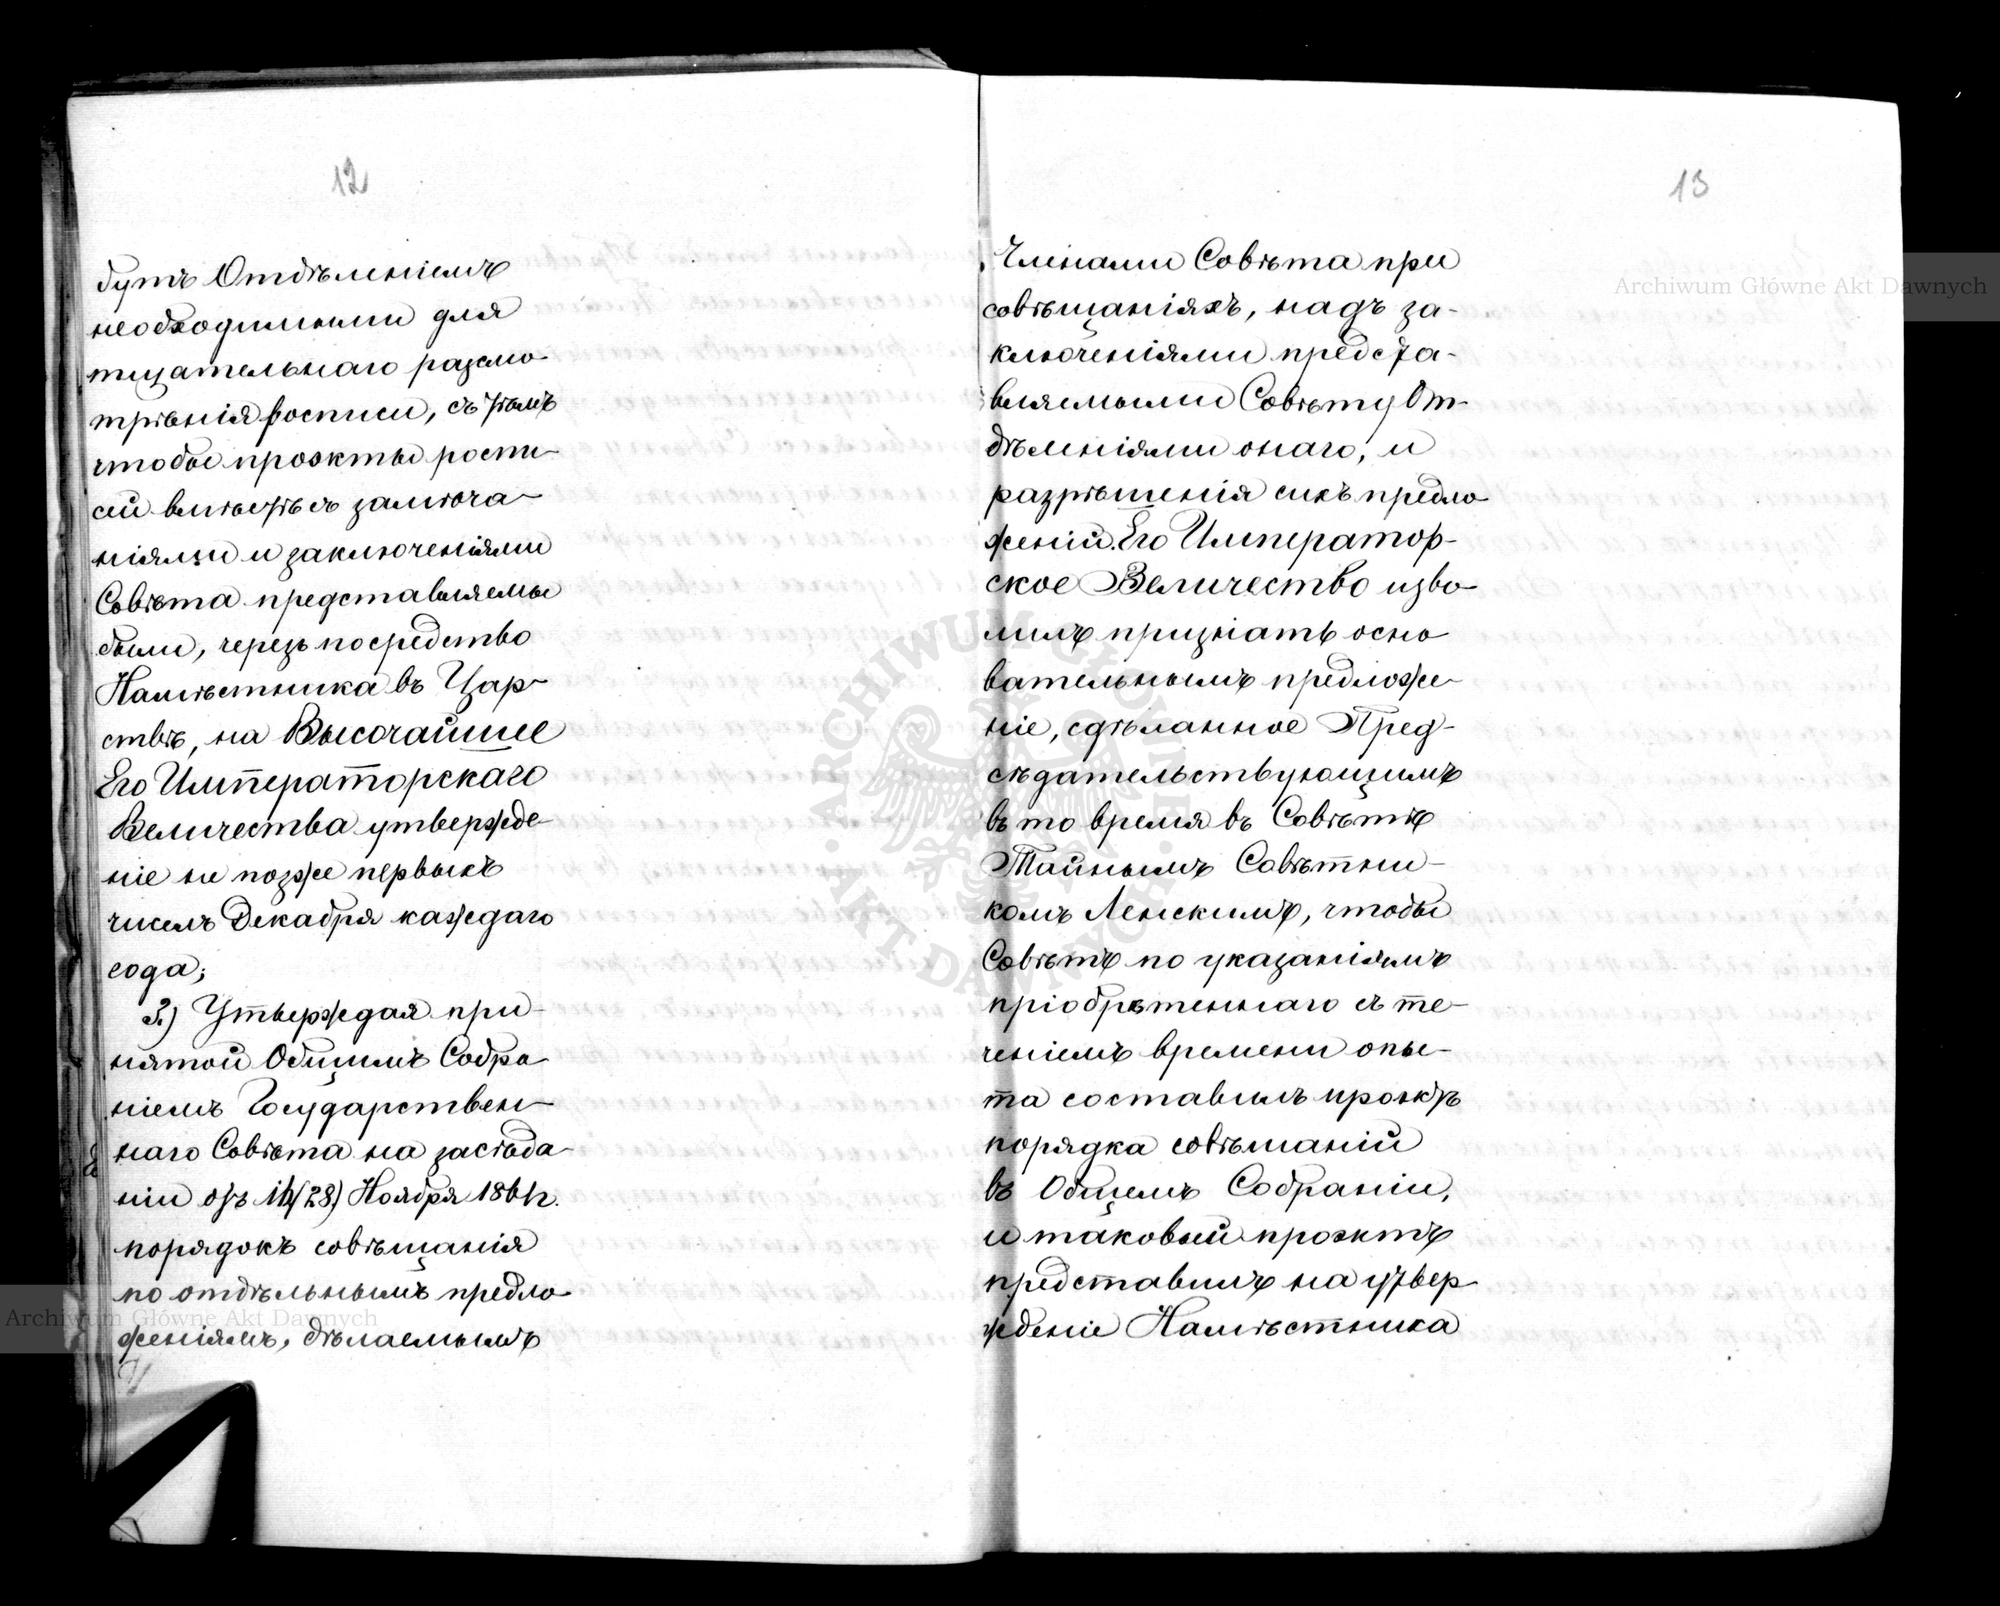 12
бутъ Отдѣленіемъ
необходимыми для
тщательнаго разсмо-
трѣнія росписи, съ тѣмъ
чтобы проэкты роспи-
сей вмѣстѣ съ замѣча-
ніями и заключеніями
Совѣта представляемы
были, черезъ посредство
Намѣстника въ Цар-
ствѣ, на Высочайшее
Его Императорскаго
Величества утвержде-
ніе не позже первыхъ
чиселъ Декабря каждаго
года;
3.) Утверждая при-
нятой Общимъ Собра
ніемъ Государствен-
наго Совѣта на засѣда-
ніи отъ 16/28) Ноября 1864.
порядокъ совѣщанія
по отдѣльнымъ предло-
женіямъ, дѣлаемымъ
13
Членами Совѣта при
совѣщаніяхъ, надъ за-
ключеніями предста-
вляемыми Совѣту От-
дѣленіями онаго, и
разрѣшенія сихъ предло
женій. Его Император-
ское Величество изво-
лилъ признать осно
вательнымъ предложе-
ніе, сдѣланное Пред-
сѣдательствующимъ
въ то время въ Совѣтѣ
Тайнымъ Совѣтни-
комъ Ленскимъ, чтобы
Совѣтъ по указаніямъ
пріобрѣтеннаго съ те-
ченіемъ времени опы-
та составилъ проэктъ
порядка совѣщаній
въ Общемъ Собраніи,
и таковый проэктъ
представилъ на утвер
жденіе Намѣстника
Archiwum Główne Akt Dawnych
Archiwum Główne Akt Dawnych
ARCHIWUM GŁÓWNE
AKT DAWNYCH